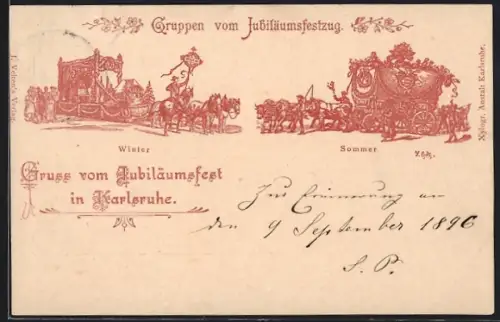 Gruppen vom Jubiläumsfestzug.
F. Vetter's Verlag.
Winter
Sommer
Xylogr. Anstalt Karlsruhe.
Gruss vom Jubiläumsfest
in Karlsruhe.
Zur Erinnerung an
den 9 September 1896
S. P.